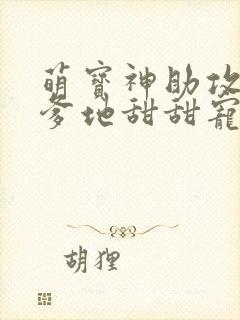 萌寶神助攻
爹地甜甜寵
胡狸